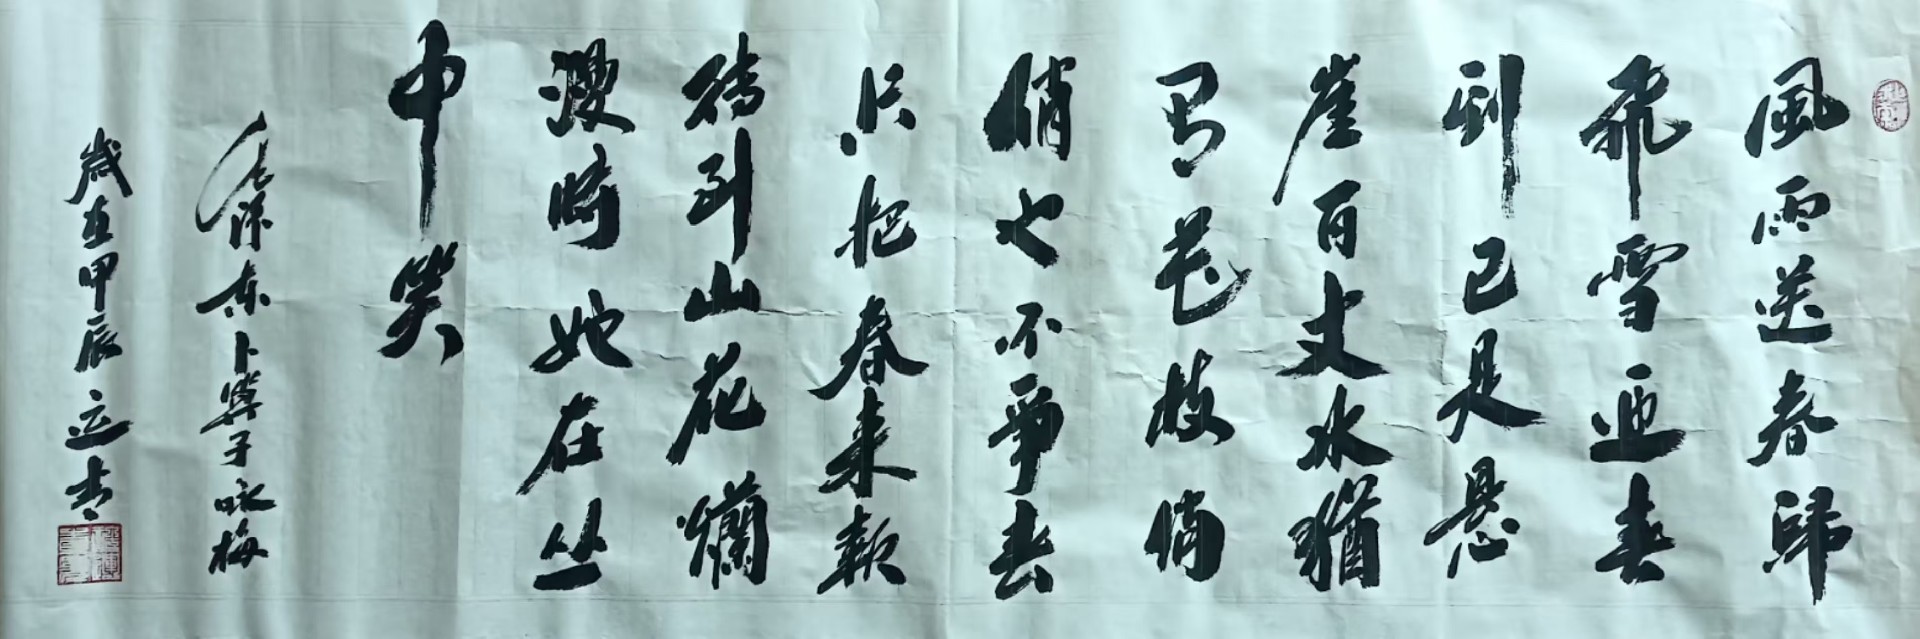 風雨送春歸
飛雪迎春
到已是悬
崖百丈水猶
有花枝俏
俏也不爭春
只把春来報
待到山花爛
漫時她在丛
中笑
毛泽东卜算子咏梅
歲在甲辰立